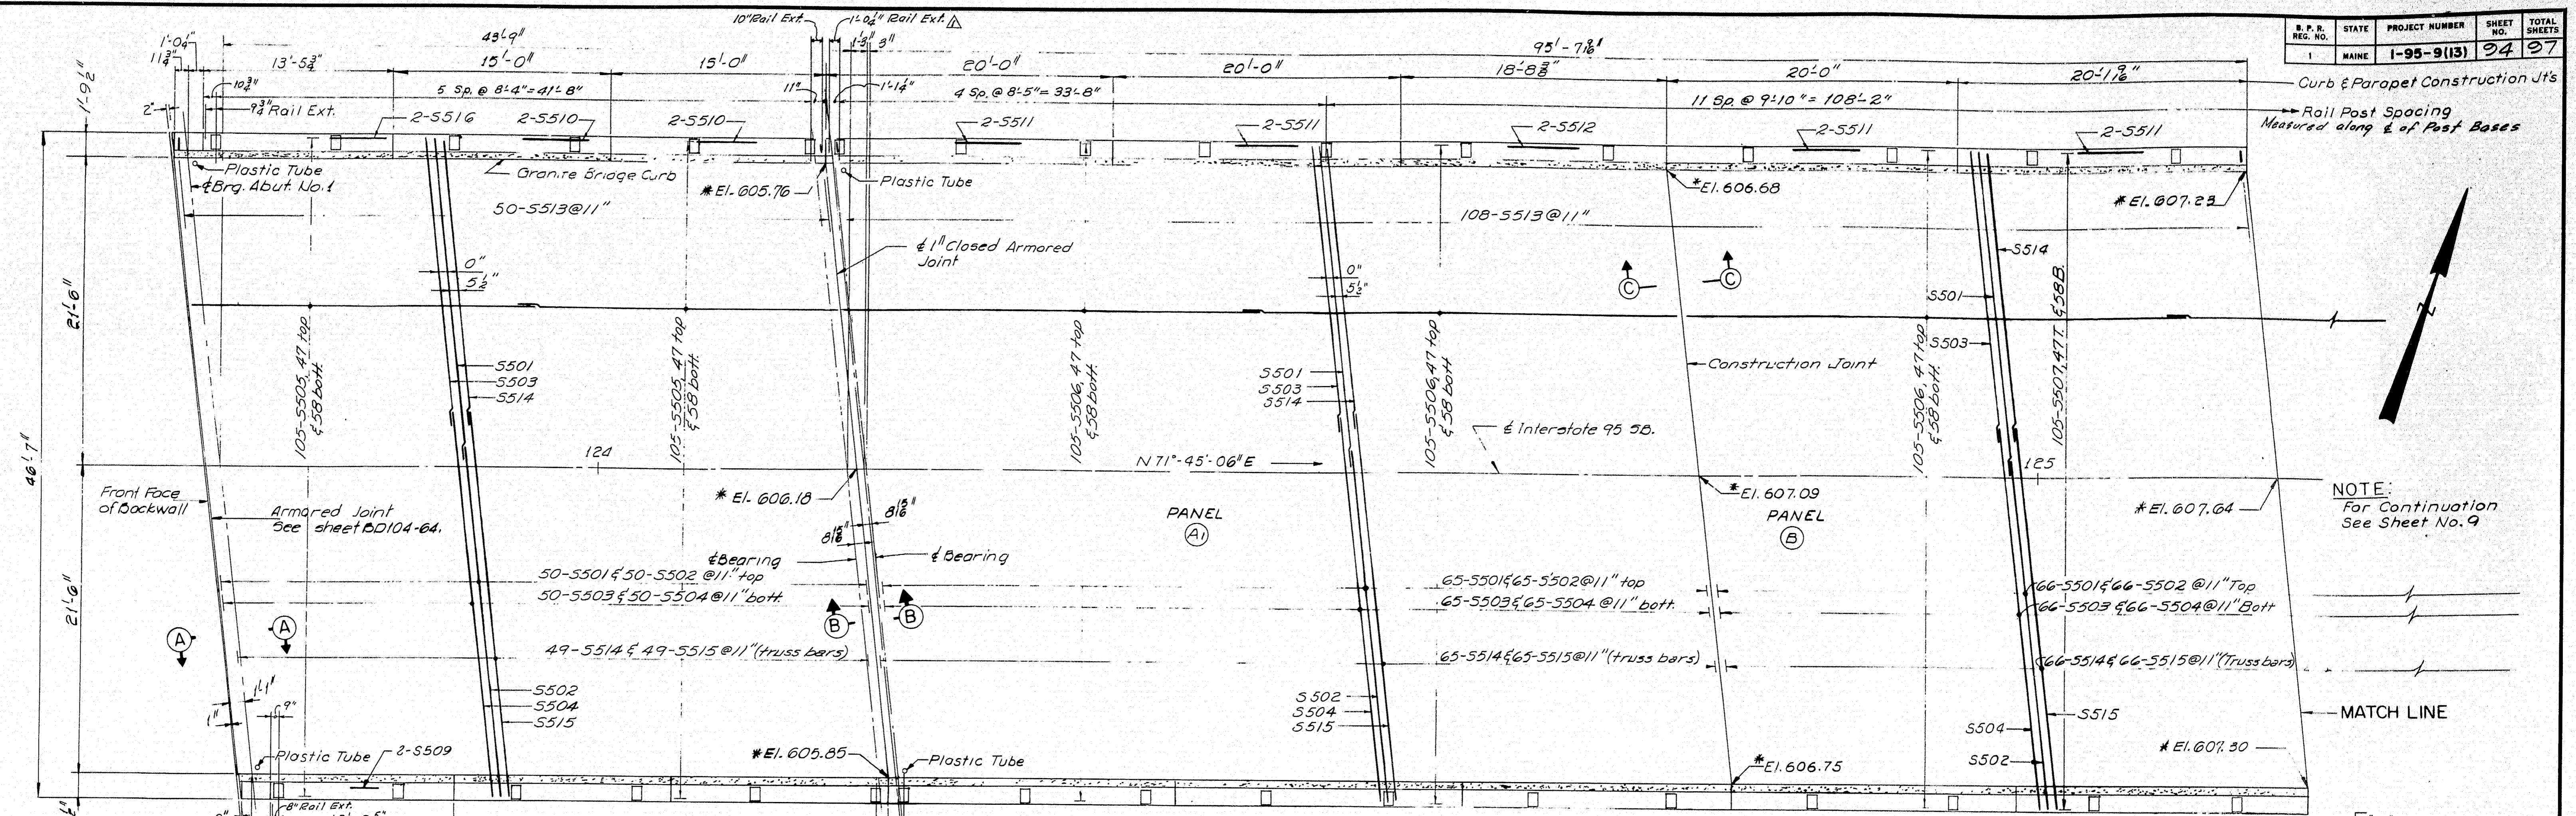 B. P. R. REG. NO.
STATE
PROJECT NUMBER
SHEET NO.
TOTAL SHEETS
1
MAINE
1-95-9(13)
94
97
10" Rail Ext.
1'-0¼" Rail Ext.
1'-3"
3"
43'-9"
95'-7 9/16"
1'-0¼"
11¾"
13'-5¾"
15'-0"
15'-0"
20'-0"
20'-0"
18'-8⅜"
20'-0"
20'-1 9/16"
Curb & Parapet Construction Jt's
1'-9½"
10¾"
5 Sp. @ 8'-4" = 41'-8"
11"
1'-1¼"
4 Sp. @ 8'-5" = 33'-8"
11 Sp. @ 9'-10" = 108'-2"
Rail Post Spacing
Measured along ℄ of Post Bases
2"
9¾" Rail Ext.
2-S516
2-S510
2-S510
2-S511
2-S511
2-S512
2-S511
2-S511
Plastic Tube
℄ Brg. Abut. No. 1
Granite Bridge Curb
* El. 605.76
Plastic Tube
* El. 606.68
* El. 607.23
50-S513 @ 11"
108-S513 @ 11"
℄ 1" Closed Armored
Joint
S514
0"
5½"
0"
5½"
C
C
S501
S503
21'-6"
105-S505, 47 top
& 58 bott.
105-S505, 47 top
& 58 bott.
105-S506, 47 top
& 58 bott.
105-S506, 47 top
& 58 bott.
105-S506, 47 top
& 58 bott.
105-S507, 47 T. & 58 B.
N
S501
S503
S514
S501
S503
S514
Construction Joint
℄ Interstate 95 SB.
46'-7"
124
N 71°-45'-06" E
125
Front Face
of Backwall
Armored Joint
See sheet BD104-64.
* El. 606.18
* El. 607.09
* El. 607.64
NOTE:
For Continuation
See Sheet No. 9
PANEL
A1
PANEL
B
8 15/16"
8 15/16"
℄ Bearing
℄ Bearing
21'-6"
50-S501 & 50-S502 @ 11" top
50-S503 & 50-S504 @ 11" bott.
65-S501 & 65-S502 @ 11" top
65-S503 & 65-S504 @ 11" bott.
66-S501 & 66-S502 @ 11" Top
66-S503 & 66-S504 @ 11" Bott
A
A
B
B
49-S514 & 49-S515 @ 11" (truss bars)
65-S514 & 65-S515 @ 11" (truss bars)
66-S514 & 66-S515 @ 11" (Truss bars)
1'-1"
1"
9"
S502
S504
S515
S502
S504
S515
S515
S504
S502
MATCH LINE
Plastic Tube
2-S509
* El. 605.85
Plastic Tube
* El. 606.75
* El. 607.30
8" Rail Ext.